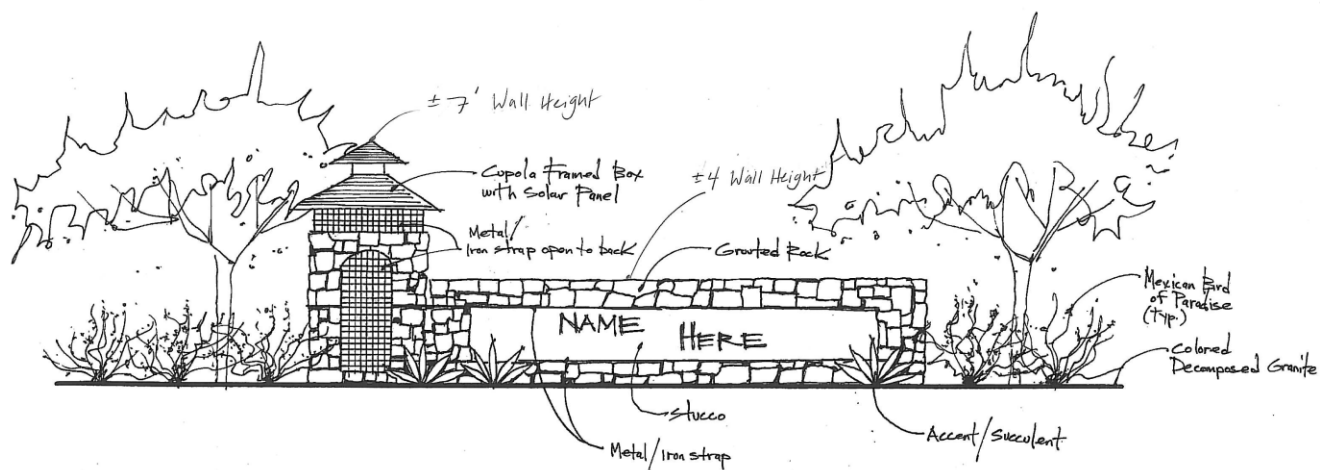 ± 7' Wall Height
Cupola Framed Box
with Solar Panel
±4 Wall Height
Metal/
Iron strap open to back
Grouted Rock
Mexican Bird
of Paradise
(typ.)
NAME HERE
Colored
Decomposed Granite
Stucco
Metal/Iron strap
Accent/Succulent